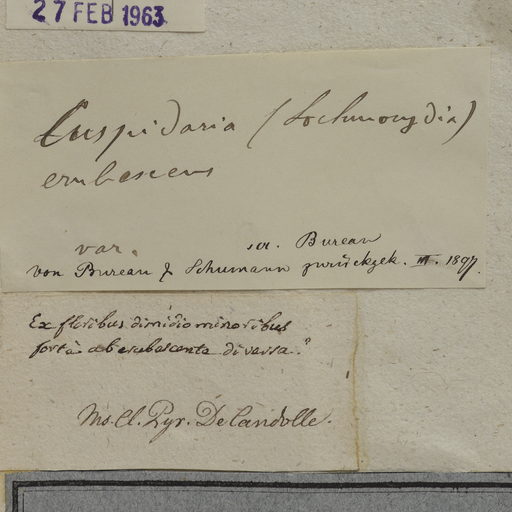 27 FEB 1963
Cuspidaria (Lochmocydia)
erubescens
var. scr. Bureau
von Bureau & Schumann zurückgek. III. 1897.
Ex floribus dimidio minoribus
forte ab erubescente diversa."
Ms. Cl. Pyr. De Candolle.